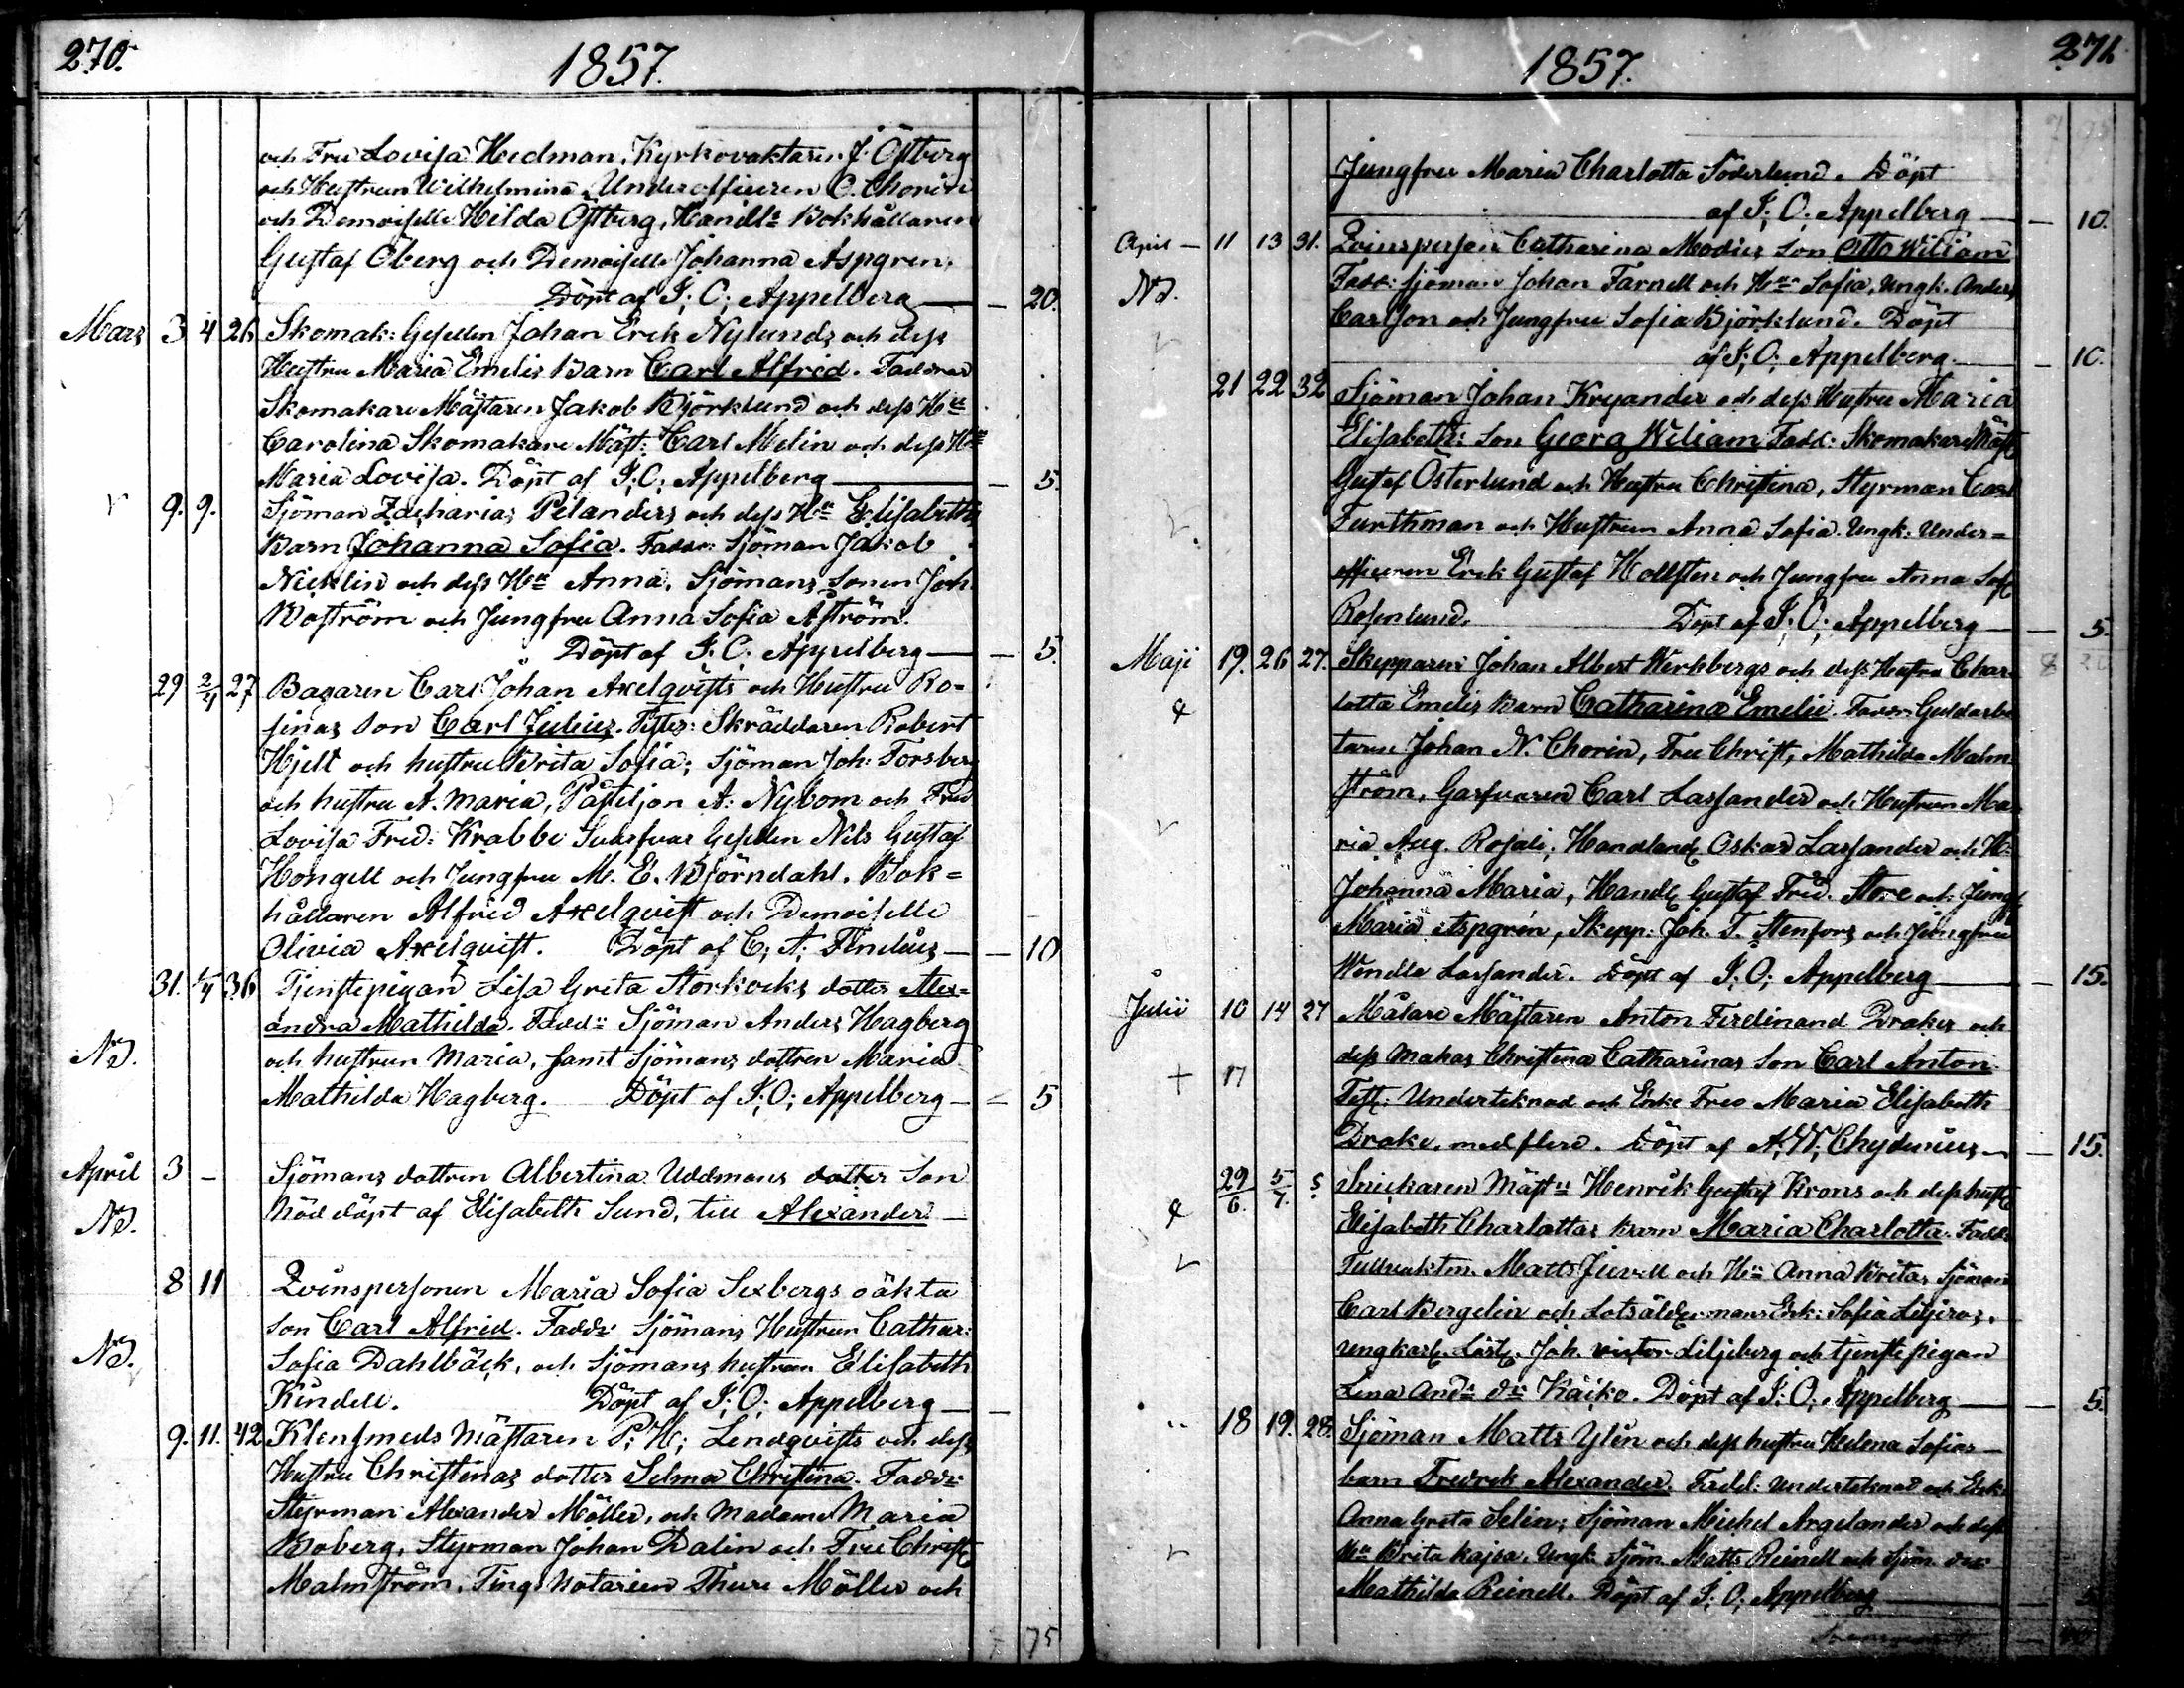 270.
1857.
och Fru Lovisa Hedman, Kyrkovaktaren J. Östberg
och Hustrun Wilhelmina, Underofficeren C. Chorin
och Demoiselle Hilda Östberg, Handls Bokhållaren
Gustaf Öberg och Demoiselle Johanna Aspgren.
Döpt af I; O; Appelberg — — 20.
Mars 3 4 26 Skomak: Gesellen Johan Erik Nylunds och dess
Hustru Maria Emelis Barn Carl Alfred. Faddrar
Skomakare Mästaren Jakob Björklund och dess Hu
Carolina Skomakare Mäst: Carl Melin och dess Hu
Maria Lovisa. Döpt af I; O; Appelberg — — 5.
9. 9. Sjöman Zacharias Pelanders och dess Hu Elisabeths
Barn Johanna Sofia. Faddr: Sjöman Jakob
Nicklin och dess Hu Anna, Sjömans Sonen Joh.
Boström och Jungfru Anna Sofia Åström.
Döpt af I. O. Appelberg — — 5.
29 2/4 27 Bagaren Carl Johan Axelqvists och Hustru Ro=
sinas Son Carl Julius. Testes: Skräddaren Robert
Hjelt och hustru Brita Sofia; Sjöman Joh: Forsberg
och hustru A. Maria, Påstiljon A: Nybom och Fru
Lovisa Fred: Krabbe Gesellen Nils Gustaf
Hongell och Jungfru M. E. Björndahl. Bok=
hållaren Alfred Axelqvist och Demoiselle
Olivia Axelqvist. Döpt af C; A; — — 10
31. /4 36 Tjenstepigan Lisa Greta Storkocks dotter Alex=
andra Mathilda. Fadd: Sjöman Anders Hagberg
Nd. och hustrun Maria, samt Sjömans dottren Maria
Mathilda Hagberg. Döpt af I; O; Appelberg — — 5
April 3 — Sjömans dottren Albertina Uddmans dotter Son
Nd. Nöddöpt af Elisabeth Sund, till Alexander —
8 11 Qvinspersonen Maria Sofia Sexbergs oäkta
Son Carl Alfred. Faddr: Sjömans Hustrun Cathar:
Nd. Sofia Dahlbäck, och Sjömans hustrun Elisabeth
Kindell. Döpt af I; O; Appelberg — —
9. 11. 42 Klensmeds Mästaren P; H; Lindqvists och dess
Hustru Christinas dotter Selma Christina. Faddr:
Styrman Alexander Möller, och Madame Maria
Boberg, Styrman Johan Dalin och Fru Christ:
Malmström, Tings Notarien Thure Möller och
75
1857.
271.
Jungfru Maria Charlotta Söderlund. Döpt
af I; O; Appelberg — — 10.
April — 11 13 31. Qvinspersen Catharina Modins Son Otto Wiliam
Nd. Fadd: Sjöman Johan Farnell och Hu Sofia, Ungk. Anders
Carlson och Jungfru Sofia Björklund. Döpt
af I; O; Appelberg. — — 10.
21 22 32 Sjöman Johan Kryander och dess Hustru Maria
Elisabeth: Son Georg Wiliam Fadd: Skomakare Mäst
Gustaf Österlund och Hustru Christina, Styrman Carl
Furthman och Hustrun Anna Sofia. Ungk: Under=
officeren Erik Gustaf Hollsten och Jungfru Anna Sof
Rosenlund. Döpt af I; O; Appelberg — — 5.
Maji 19. 26 27. Skepparen Johan Albert Werkbergs och dess Hustru Char=
lotta Emelis Barn Catharina Emelie. Faddr: Guldarbe
taren Johan N. Chorin, Fru Christ, Mathilda Malm
ström, Garfvaren Carl Lassander och Hustrun Ma
ria Aug. Rosali; Handland Oskar Lassander och H:
Johanna Maria, Handl Gustaf Fred. Store och Jungf
Maria Aspgrén, Skepp: Joh. T. Stenfors och Jungfru
Wendla Lassander. Döpt af I; O; Appelberg — — 15.
Julii 10 14 27 Målare Mästaren Anton Ferdinand Drakes och
dess makas Christina Catharinas Son Carl Anton.
+ 17 Test: Underteknad och Enke Fru Maria Elisabeth
Drake, med flere. Döpt af A; W; Chydenius — — 15.
29/6. 5/7. Snickaren Mäst: Henrik Gustaf Krons och dess hust
Elisabeth Charlottas barn Maria Charlotta. Fadd:
Tullvaktm. Matts och Hu Anna Brita, Sjöman
Carl Bergelin och Lotsåldermans Enk: Sofia
ungkarl. Joh. victor Liljeberg och tjenstepigan
Lena And: dr Kaiko. Döpt af I; O; Appelberg — — 5.
18 19. 28. Sjöman Matts Ylén och dess hustru Helena Sofias
barn Fredrik Alexander. Fadd: Underteknad och Enk:
Anna Greta Selin; Sjöman Michel Argelander och dess
Hu Brita Kajsa. Ungk. Sjöm. Matts Reinell och Sjöm. dr:
Mathilda Reinell. Döpt af I; O; Appelberg —